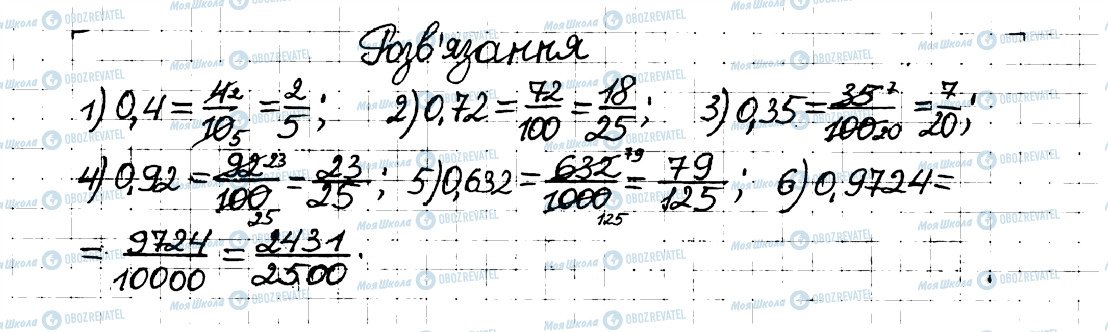 Розв'язання
1) 0,4 = 4/10 = 2/5; 2) 0,72 = 72/100 = 18/25; 3) 0,35 = 35/100 = 7/20;
4) 0,92 = 92/100 = 23/25; 5) 0,632 = 632/1000 = 79/125; 6) 0,9724 =
= 9724/10000 = 2431/2500.